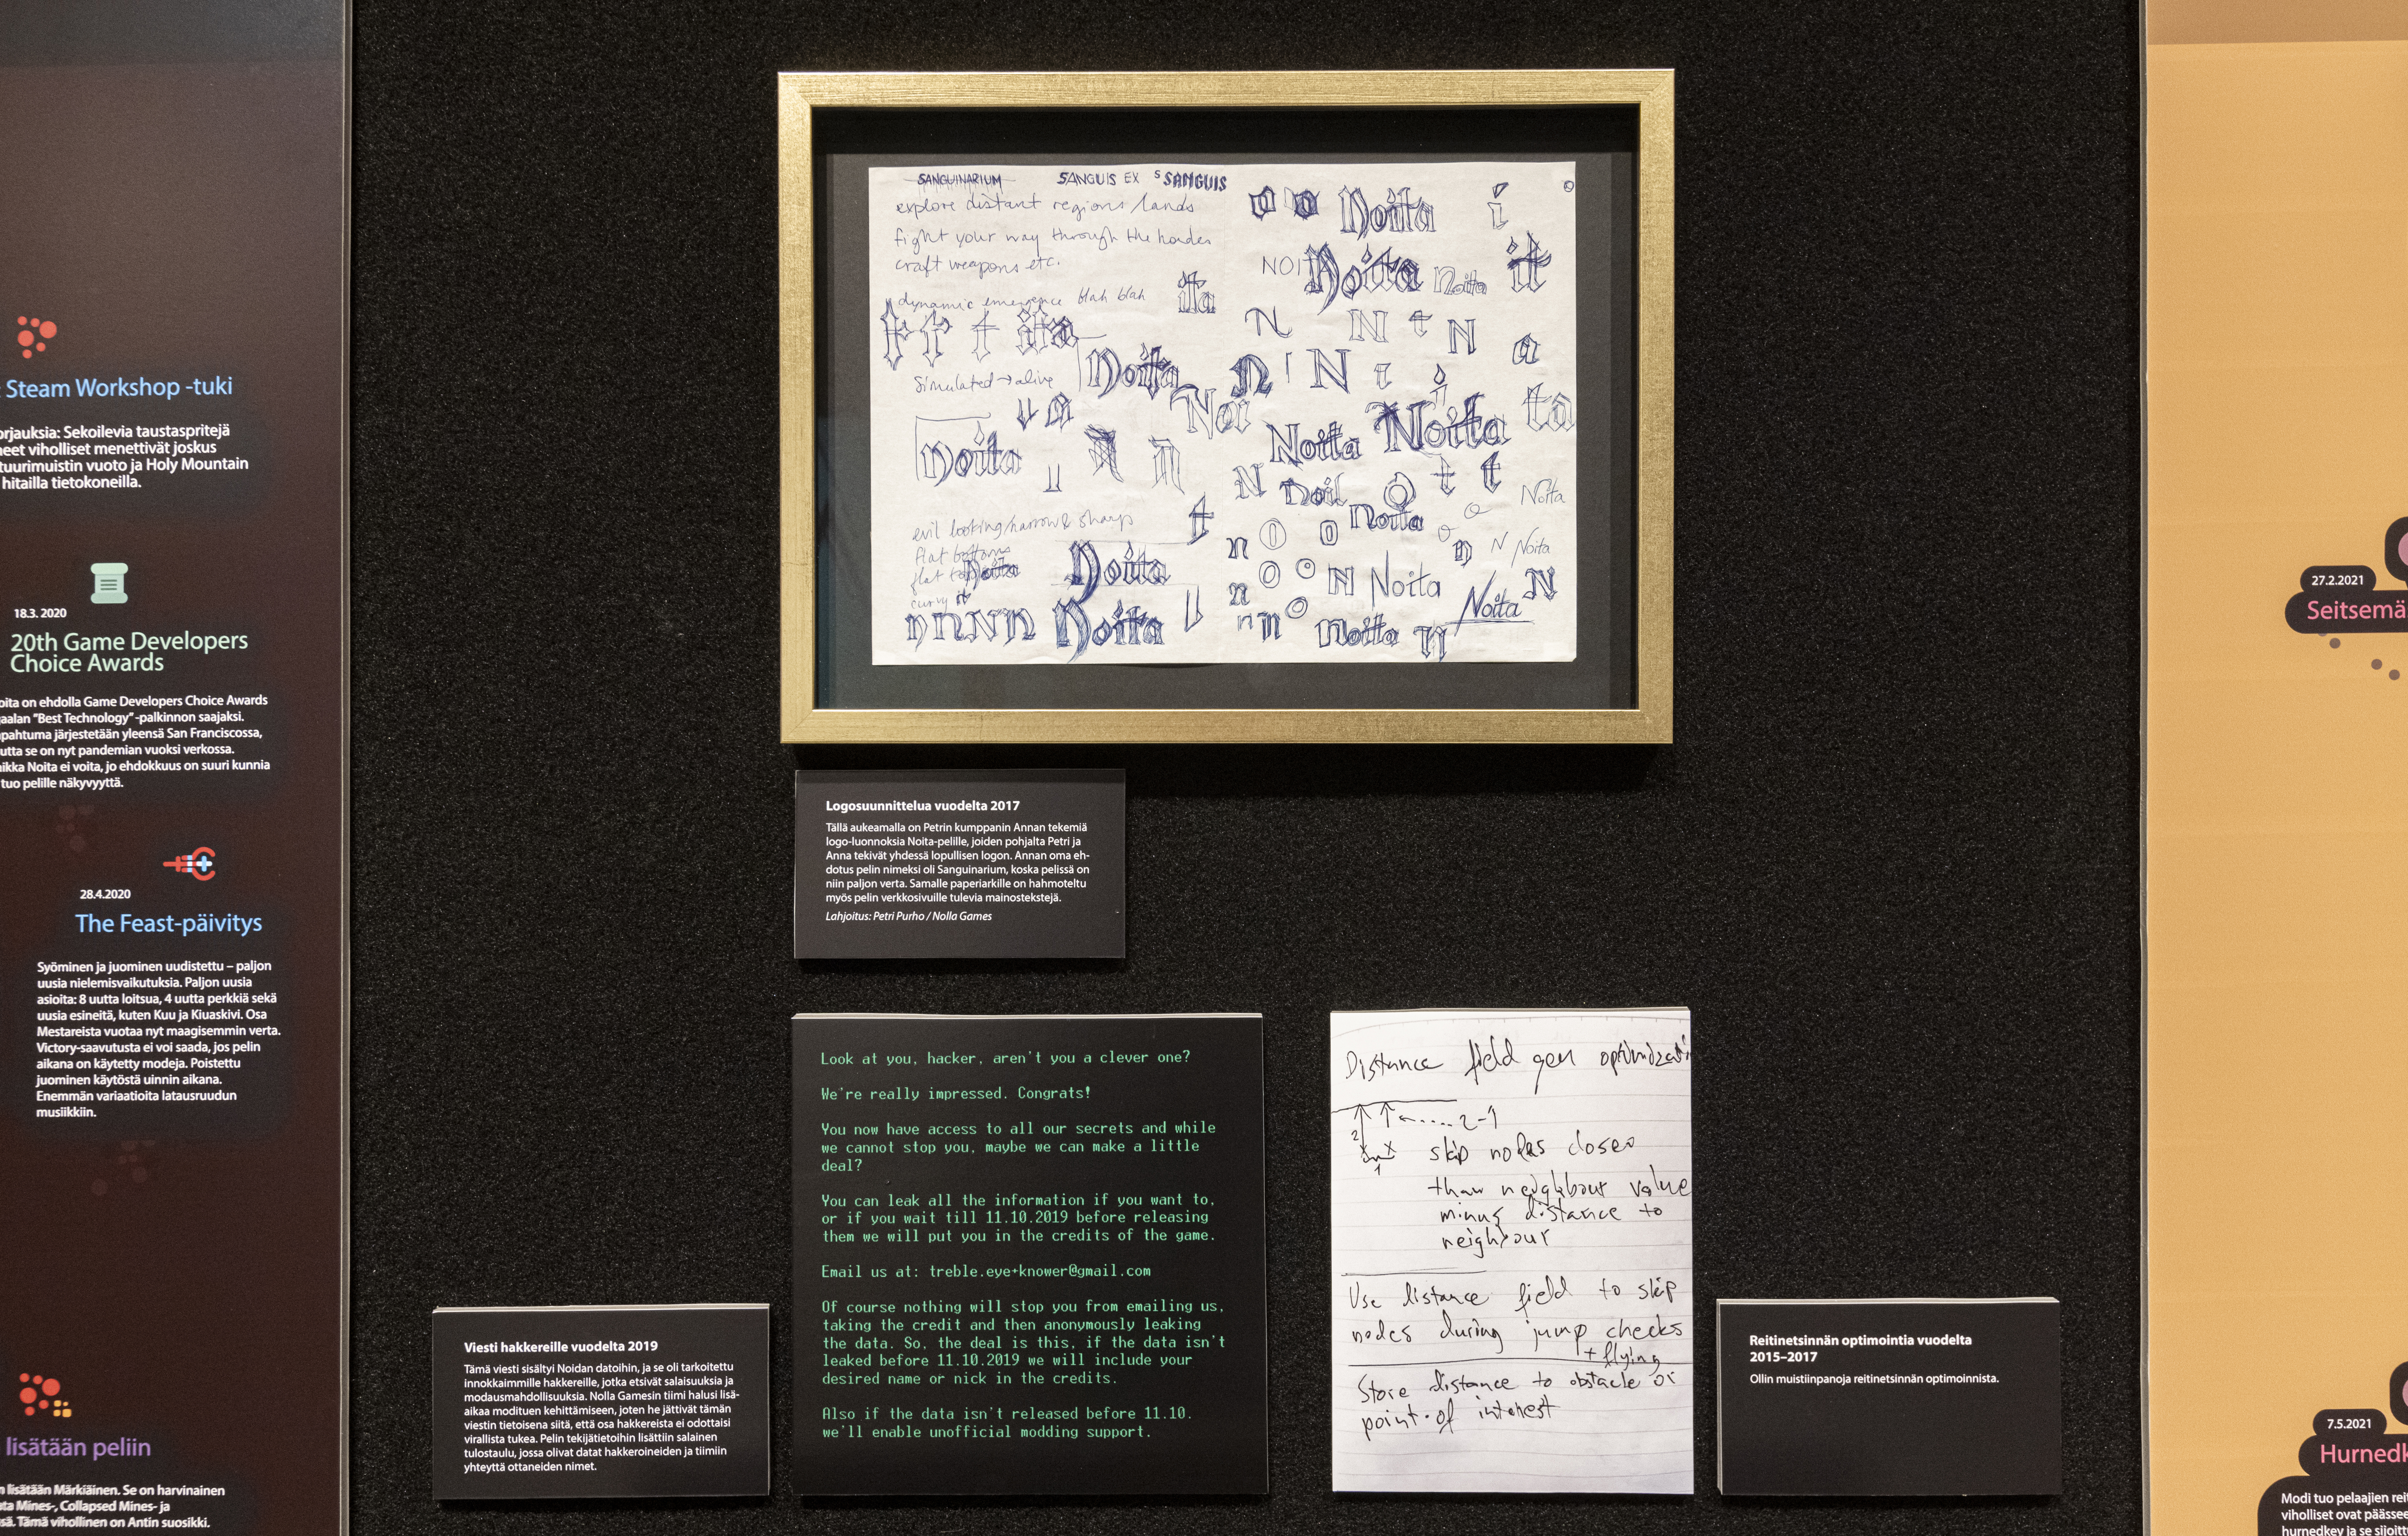 Steam Workshop -tuki
orjauksia: Sekoilevia taustaspritejä
neet viholliset menettivät joskus
tuurimuistin vuoto ja Holy Mountain
hitailla tietokoneilla.
18.3. 2020
20th Game Developers
Choice Awards
oita on ehdolla Game Developers Choice Awards
aalan "Best Technology" -palkinnon saajaksi.
pahtuma järjestetään yleensä San Franciscossa,
utta se on nyt pandemian vuoksi verkossa.
ikka Noita ei voita, jo ehdokkuus on suuri kunnia
tuo pelille näkyvyyttä.
28.4.2020
The Feast-päivitys
Syöminen ja juominen uudistettu – paljon
uusia nielemisvaikutuksia. Paljon uusia
asioita: 8 uutta loitsua, 4 uutta perkkiä sekä
uusia esineitä, kuten Kuu ja Kiuaskivi. Osa
Mestareista vuotaa nyt maagisemmin verta.
Victory-saavutusta ei voi saada, jos pelin
aikana on käytetty modeja. Poistettu
juominen käytöstä uinnin aikana.
Enemmän variaatioita latausruudun
musiikkiin.
lisätään peliin
lisätään Märkiäinen. Se on harvinainen
Mines-, Collapsed Mines- ja
sä. Tämä vihollinen on Antin suosikki.
SANGUINARIUM SANGUIS EX S SANGUIS
explore distant regions/lands
fight your way through the hordes
craft weapons etc.
dynamic emergence blah blah
t t t ita
ita
Simulated → alive
Noita
Noita
evil looking/narrow & sharp
flat bottoms
flat top Noita
curvy it
Noita
n n N n Noita
Noita i
NOITA Noita Noita it
N N t N a
n N t
Noi Noita Noita ta
N Noit t t Noita
Noita
n O o n N Noita
n O o N Noita Noita N
n n o Noita n
Logosuunnittelua vuodelta 2017
Tällä aukeamalla on Petrin kumppanin Annan tekemiä
logo-luonnoksia Noita-pelille, joiden pohjalta Petri ja
Anna tekivät yhdessä lopullisen logon. Annan oma eh-
dotus pelin nimeksi oli Sanguinarium, koska pelissä on
niin paljon verta. Samalle paperiarkille on hahmoteltu
myös pelin verkkosivuille tulevia mainostekstejä.
Lahjoitus: Petri Purho / Nolla Games
Viesti hakkereille vuodelta 2019
Tämä viesti sisältyi Noidan datoihin, ja se oli tarkoitettu
innokkaimmille hakkereille, jotka etsivät salaisuuksia ja
modausmahdollisuuksia. Nolla Gamesin tiimi halusi lisä-
aikaa modituen kehittämiseen, joten he jättivät tämän
viestin tietoisena siitä, että osa hakkereista ei odottaisi
virallista tukea. Pelin tekijätietoihin lisättiin salainen
tulostaulu, jossa olivat datat hakkeroineiden ja tiimiin
yhteyttä ottaneiden nimet.
Look at you, hacker, aren't you a clever one?
We're really impressed. Congrats!
You now have access to all our secrets and while
we cannot stop you, maybe we can make a little
deal?
You can leak all the information if you want to,
or if you wait till 11.10.2019 before releasing
them we will put you in the credits of the game.
Email us at: treble.eye+knower@gmail.com
Of course nothing will stop you from emailing us,
taking the credit and then anonymously leaking
the data. So, the deal is this, if the data isn't
leaked before 11.10.2019 we will include your
desired name or nick in the credits.
Also if the data isn't released before 11.10.
we'll enable unofficial modding support.
Distance field gen optimizati
2-1
2
x
1
skip nodes closer
than neighbour value
minus distance to
neighbour
Use distance field to skip
nodes during jump checks
+ flying
Store distance to obstacle or
point of interest
Reitinetsinnän optimointia vuodelta
2015–2017
Ollin muistiinpanoja reitinetsinnän optimoinnista.
27.2.2021
Seitsemä
7.5.2021
Hurnedk
Modi tuo pelaajien rei
viholliset ovat päässe
hurnedkey ja se sijoitu